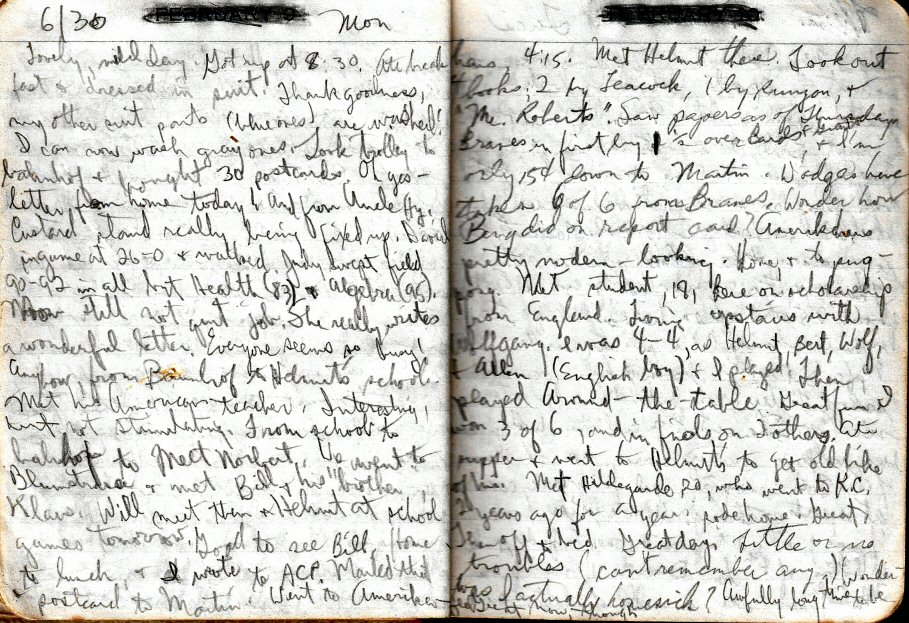 6/30 Mon
Lovely, mild day. Got up at 8:30. Ate break-
fast & dressed in suit. Thank goodness,
my other suit pants (blue ones) are washed!
I can now wash gray ones. Took trolley to
bahnhof & bought 30 postcards. Of yes-
letter from home today! And from Uncle Hy.
Custard stand really being fixed up. David
in game at 26-0 & walked. Judy swept field
90-92 in all but Health (83) & Algebra (95).
Mom still not quit job. She really writes
a wonderful letter. Everyone seems so busy!
Anyhow, from Bahnhof to Helmut's school.
Met his American teacher. Interesting,
but not stimulating. From school to
bahnhof to meet Norbert. We went to
Blumstrasse & met Bill & his "brother"
Klaus. Will meet them & Helmut at school
games tomorrow. Good to see Bill. Home
to lunch, & I wrote to ACP. Mailed that
& postcard to Martin. Went to Amerika-
haus 4:15. Met Helmut there. Took out
4 books, 2 by Leacock, 1 by Runyon, &
"Mr. Roberts". Saw papers as of Thursday
Braves in first by 1's over Cards & Giants, & I'm
only 15¢ down to Martin. Dodgers have
taken 6 of 6 from Braves. Wonder how
Berg did on report card? Amerikahaus
pretty modern-looking. Home, & to ping-
pong. Met student, 18, here on scholarship
from England. Living upstairs with
Wolfgang. I was 4-4, as Helmut, Bert, Wolf,
& Allen (English boy) & I played. Then
played Around-the-table. Great fun. I
won 3 of 6, and in finals on 2 others. Ate
supper & went to Helmut's to get old bike
of his. Met Hildegarde, 20, who went to K.C.
years ago for a year. rode home. Great.
Then off to bed. Great day. Little or no
troubles (can't remember any). Wonder-
was I actually homesick? Awfully long time to be
now, though.